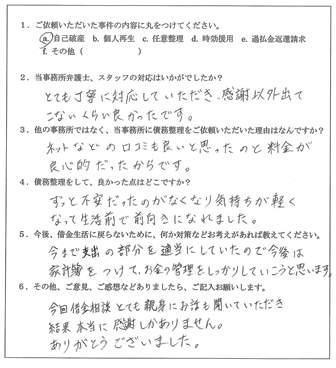 1．ご依頼いただいた事件の内容に丸をつけてください。
a.自己破産 b. 個人再生 c. 任意整理 d. 時効援用 e. 過払金返還請求
f. その他（ ）
2．当事務所弁護士、スタッフの対応はいかがでしたか？
とても丁寧に対応していただき、感謝以外出て
こないくらい良かったです。
3．他の事務所ではなく、当事務所に債務整理をご依頼いただいた理由はなんですか？
ネットなどの口コミも良いと思ったのと料金が
良心的だったからです。
4．債務整理をして、良かった点はどこですか？
ずっと不安だったのがなくなり気持ちが軽く
なって生活面で前向きになれました。
5．今後、借金生活に戻らないために、何か対策などお考えがあれば教えてください。
今まで支出の部分を適当にしていたので今後は
家計簿をつけて、お金の管理をしっかりしていこうと思います。
6．その他、ご意見、ご感想などありましたら、ご記入お願いします。
今回借金相談とても親身にお話も聞いていただき
結果本当に感謝しかありません。
ありがとうございました。